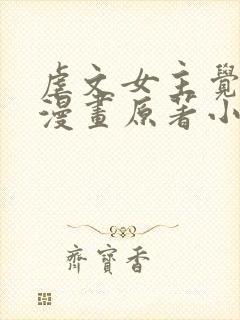 虐文女主覺
漫畫原著小
齊寶香